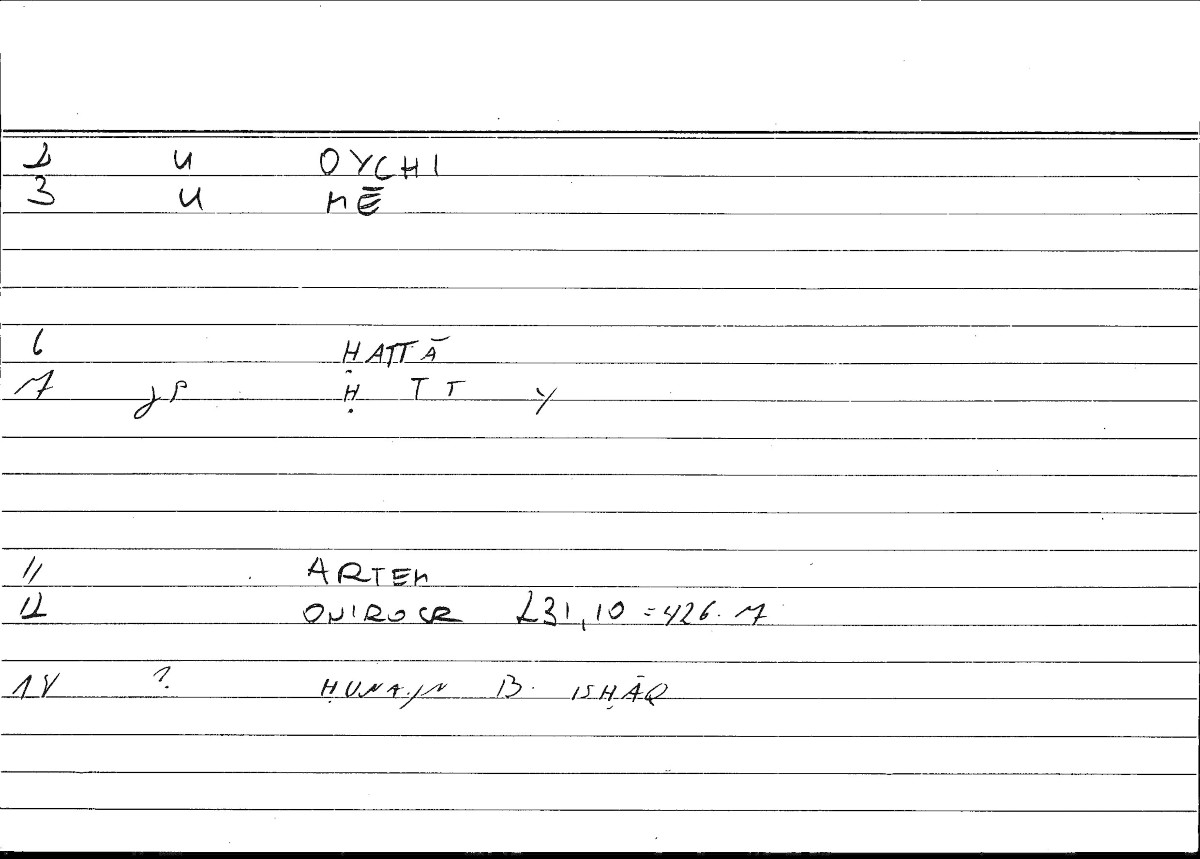 2 U OYCHI
3 U MĒ
6 ḤATTĀ
7 JP Ḥ T T Y
11 ARTEM
12 ONIROCR 231,10 = 426.7
14 ? ḤUNAJN B. ISḤĀQ